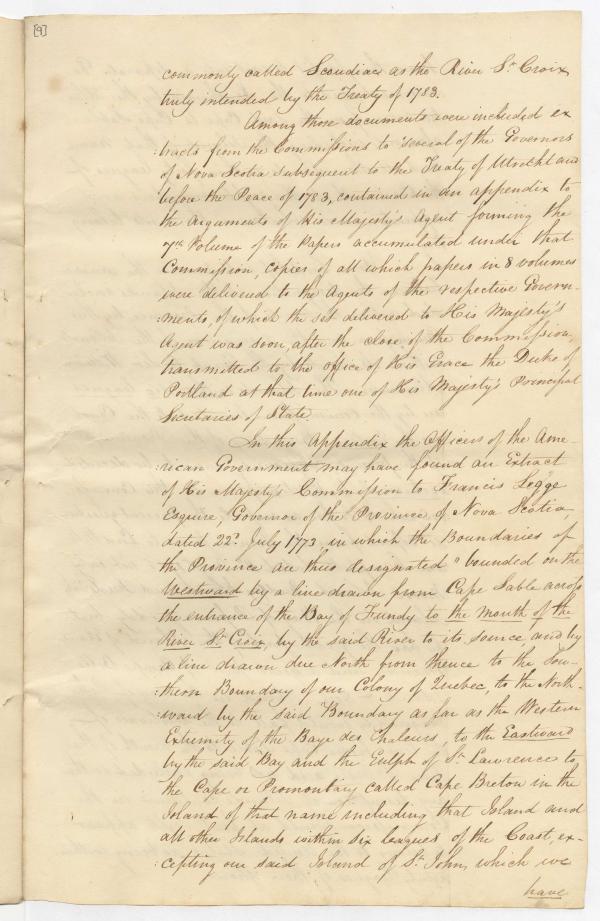 [9]
commonly called Scoudiac as the River St. Croix
truly intended by the Treaty of 1783.
Among those documents were included ex
:tracts from the Commissions to several of the Governors
of Nova Scotia subsequent to the Treaty of Utrecht and
before the Peace of 1783, contained in an appendix to
the arguments of His Majesty's Agent forming the
7th Volume of the Papers accumulated under that
Commission, copies of all which papers in 8 volumes
were delivered to the Agents of the respective Govern-
:ments, of which the set delivered to His Majesty's
Agent was soon, after the close of the Commission,
transmitted to the office of His Grace the Duke of
Portland at that time one of His Majesty's Principal
Secretaries of State.
In this Appendix the Officers of the Ame-
:rican Government may have found an Extract
of His Majesty's Commission to Francis Legge
Esquire, Governor of the Province of Nova Scotia,
dated 22d. July 1773, in which the Boundaries of
the Province are thus designated "bounded on the
Westward by a line drawn from Cape Sable across
the entrance of the Bay of Fundy to the mouth of the
River St. Croix, by the said River to its source and by
a line drawn due North from thence to the Sou-
:thern Boundary of our Colony of Quebec, to the North-
:ward by the said Boundary as far as the Western
Extremity of the Baye des Chaleurs, to the Eastward
by the said Bay and the Gulph of St. Lawrence to
the Cape or Promontary called Cape Breton in the
Island of that name including that Island and
all other Islands within six leagues of the Coast, ex-
:cepting our said Island of St. John, which we
have